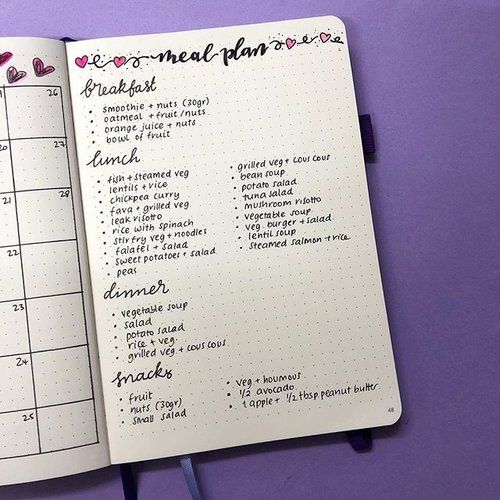 meal plan
breakfast
• smoothie + nuts (30gr)
• oatmeal + fruit/nuts
• orange juice + nuts
• bowl of fruit
lunch
• fish + steamed veg
• lentils + rice
• chickpea curry
• fava + grilled veg
• leak risotto
• rice with spinach
• stir fry veg + noodles
• falafel + salad
• sweet potatoes + salad
• peas
• grilled veg + cous cous
• bean soup
• potato salad
• tuna salad
• mushroom risotto
• vegetable soup
• veg. burger + salad
• lentil soup
• steamed salmon + rice
dinner
• vegetable soup
• salad
• potato salad
• rice + veg.
• grilled veg + cous cous
snacks
• fruit
• nuts (30gr)
• small salad
• veg + houmous
• 1/2 avocado
• 1 apple + 1/2 tbsp. peanut butter
48
26
27
28
20
21
22
23
24
25